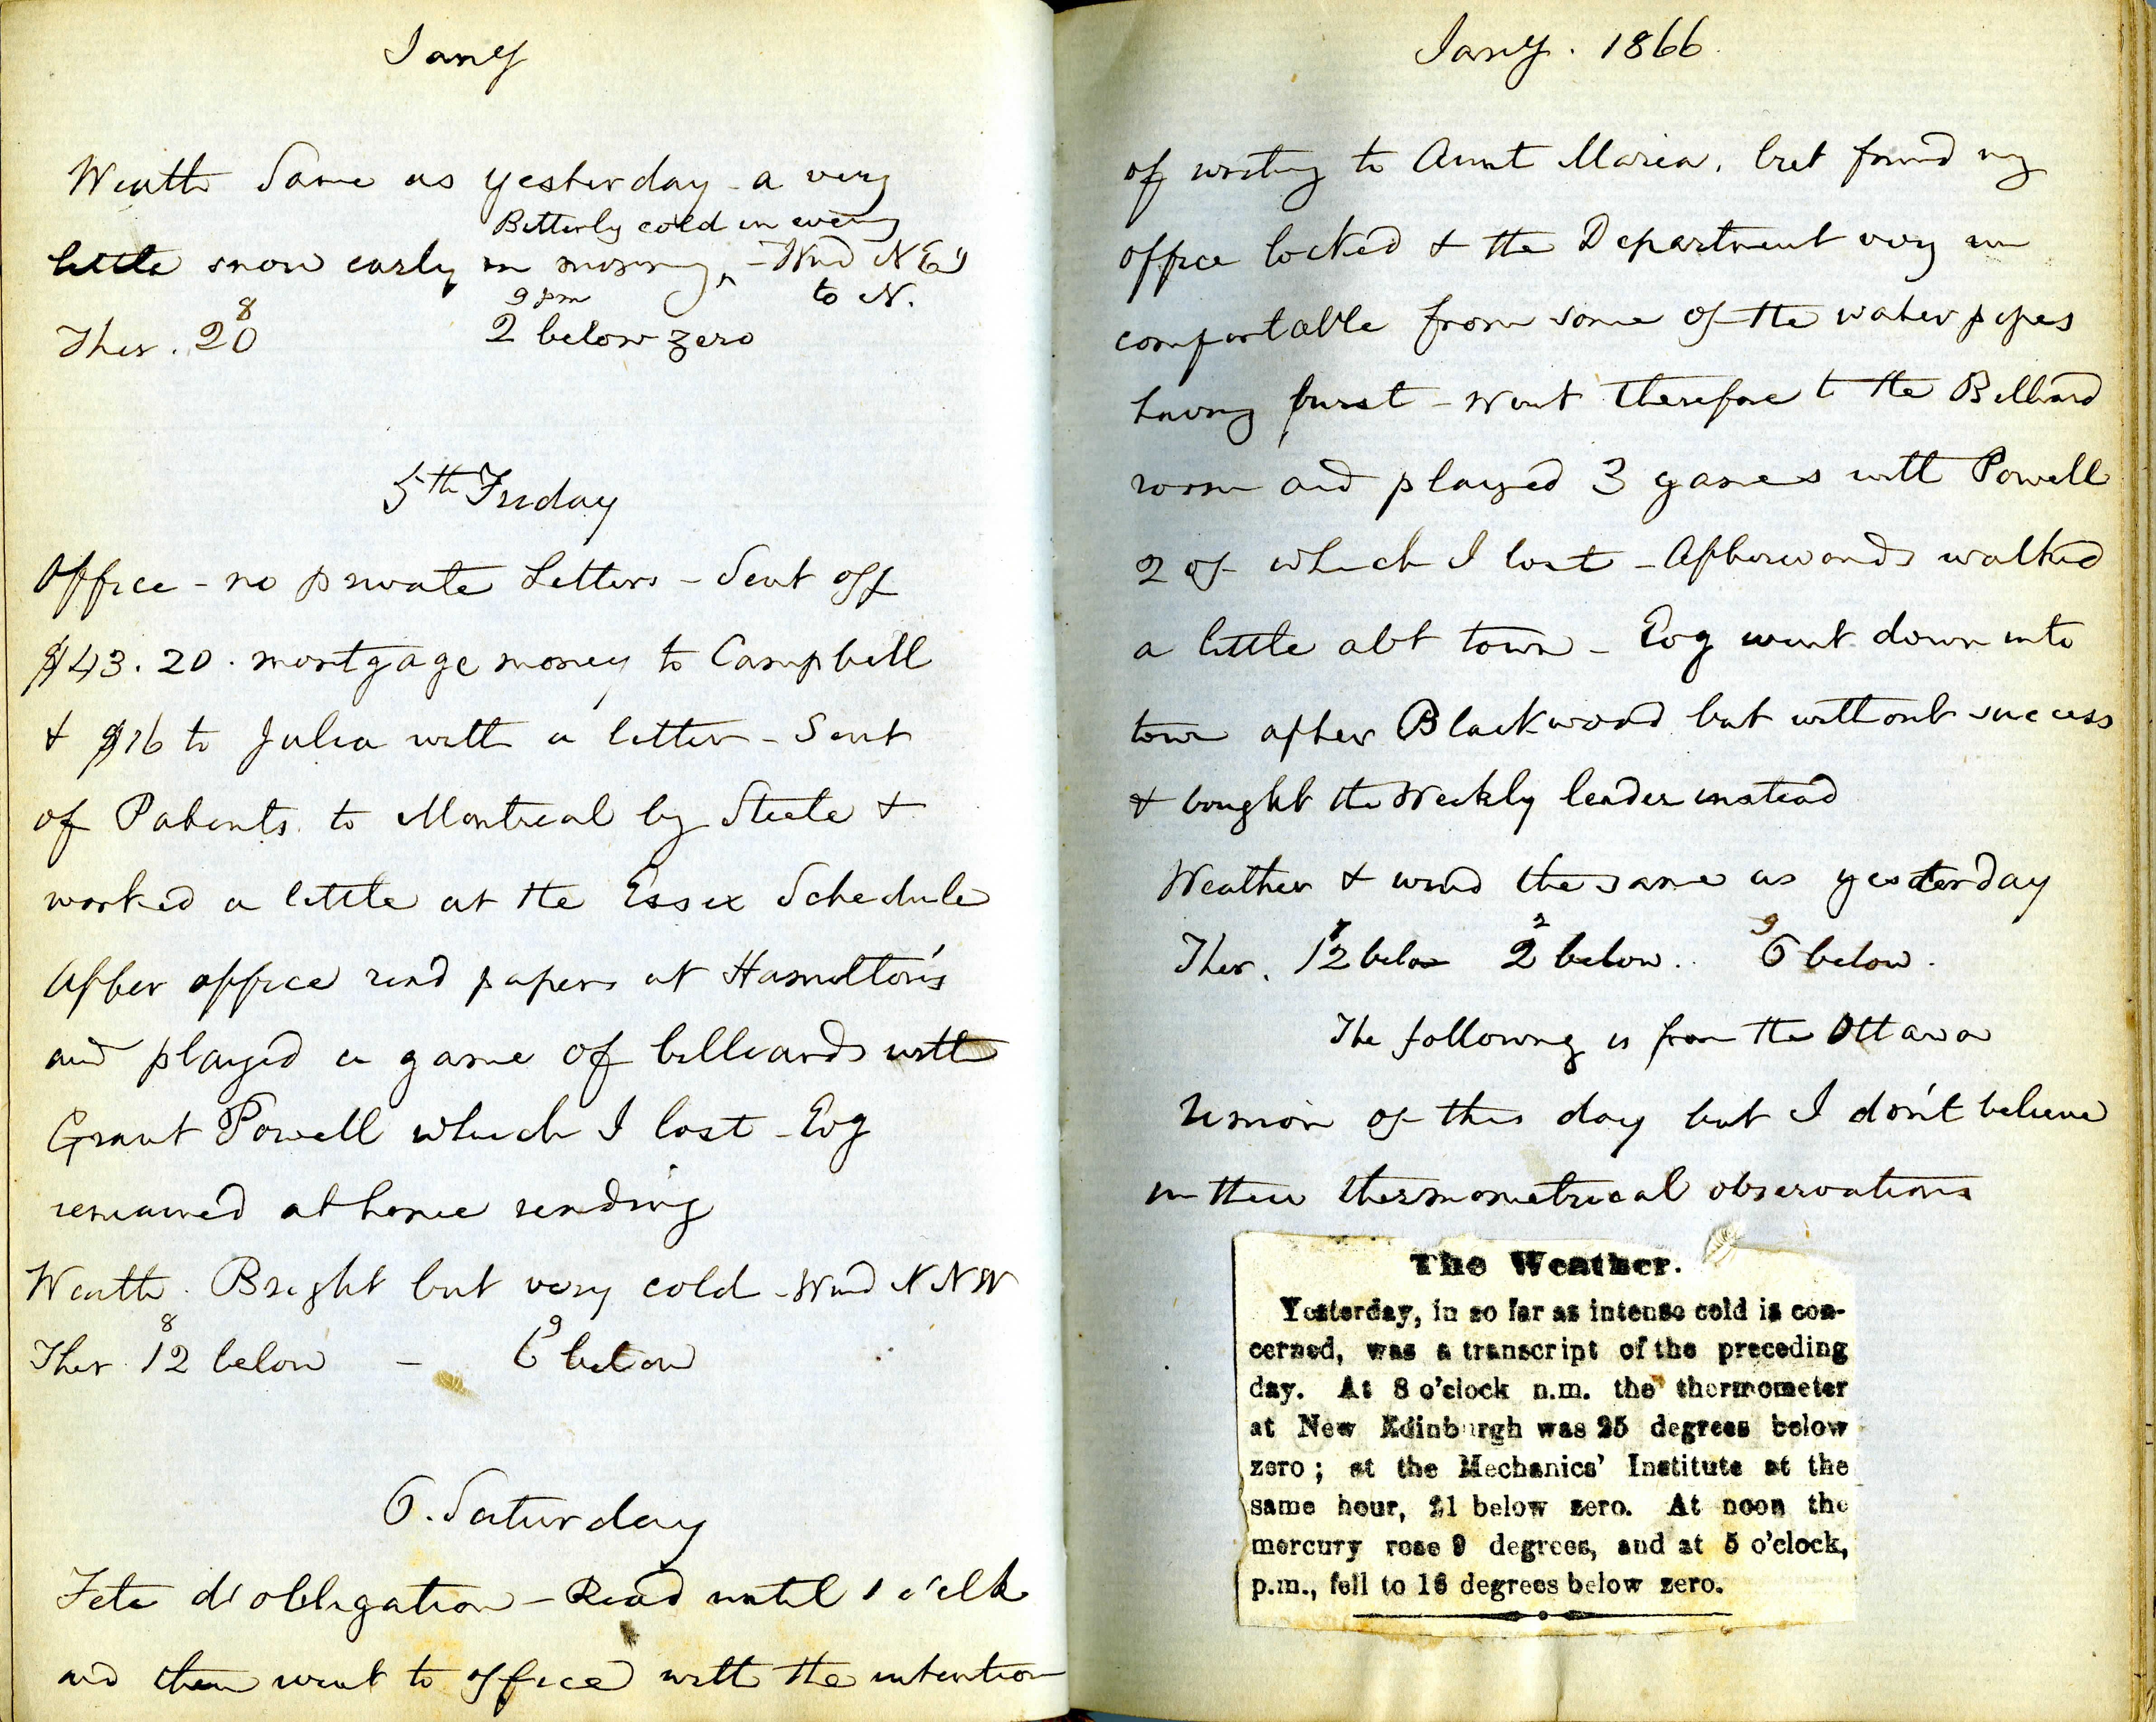 Jany
Weath Same as yesterday - a very
Bitterly cold in eveng
little snow early in morning ^ - Wind N Ely
to N.
8
9 pm
Ther. 20
2 below zero
5th Friday
Office - no private Letters - Sent off
$43.20. mortgage money to Campbell
& $16 to Julia with a letter - Sent
of Patents to Montreal by Steele &
worked a little at the Essex Schedule
After office read papers at Hamilton's
and played a game of billiards with
Grant Powell which I lost - Evg
remained at home reading
Weath. Bright but very cold - Wind N N W
8
9
Ther 12 below - 6 below
6. Saturday
Fete d'obligation - Read until 1 o'clk
and then went to office with the intention
Jany. 1866.
of writing to Aunt Maria, but found my
office locked & the Department very un
comfortable from some of the water pipes
having burst - Went therefore to the Billiard
room and played 3 games with Powell
2 of which I lost - Afterwards walked
a little abt town - Evg went down into
town after Blackwood but without success
& bought the Weekly leader instead
Weather & wind the same as yesterday
2
9
Ther. 12 below 2 below.. 6 below.
The following is from the Ottawa
Union of this day but I don't believe
in their thermometrical observations
The Weather.
Yesterday, in so far as intense cold is con-
cerned, was a transcript of the preceding
day. At 8 o'clock n.m. the thermometer
at New Edinburgh was 25 degrees below
zero; at the Mechanics' Institute at the
same hour, 21 below zero. At noon the
mercury rose 9 degrees, and at 5 o'clock,
p.m., fell to 16 degrees below zero.